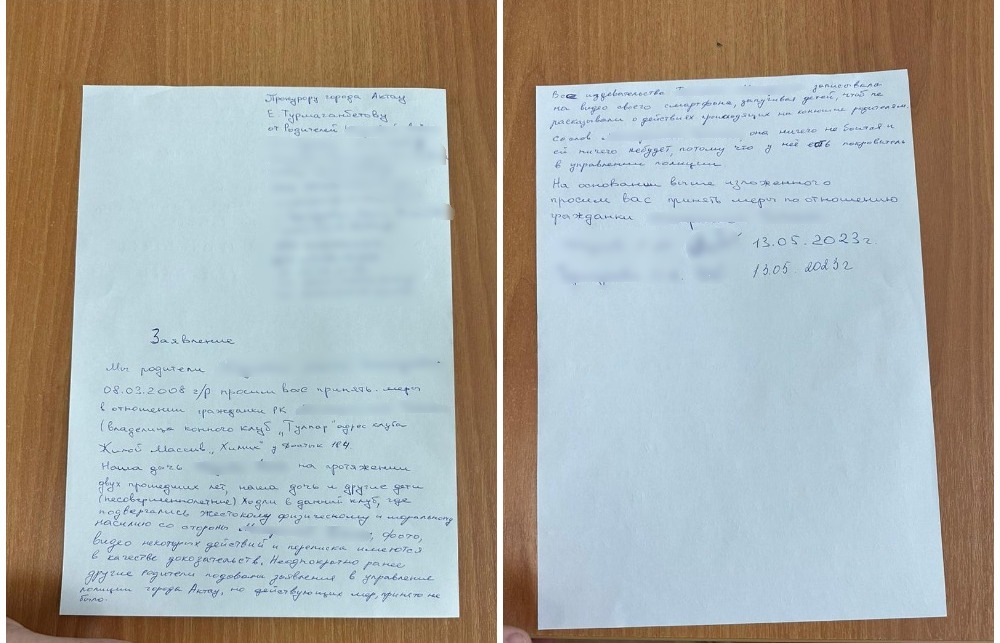 Прокурору города Актау
Е. Турмаганбетову
от Родителей
Заявление
Мы родители
08.03.2008 г/р просим вас принять меры
в отношении гражданки РК
(владелица конного клуб „Тулпар" адрес клуба
Жилой Массив „Химик"
Наша дочь на протяжении
двух прошедших лет, наша дочь и другие дети
(несовершеннолетние) ходли в данный клуб, где
подвергались жестокому физическому и моральному
насилию со стороны фото,
видео некоторых действий и переписка имеются
в качестве докозательств. Неоднократно ранее
другие Родители подовали заявления в управление
полиции города Актау, но действующих мер, принято не
было.
Все издевательства записывала
на видео своего смартфона, детей, чтоб не
рассказывали о действиях проходящих на конюшне родителям,
со слов она ничего не боится и
ей ничего небудет, потому что у неё есть покровитель
в управлении полиции
На основании выше изложенного
просим вас принять меры по отношению
гражданки
13.05.2023г.
13.05.2023г